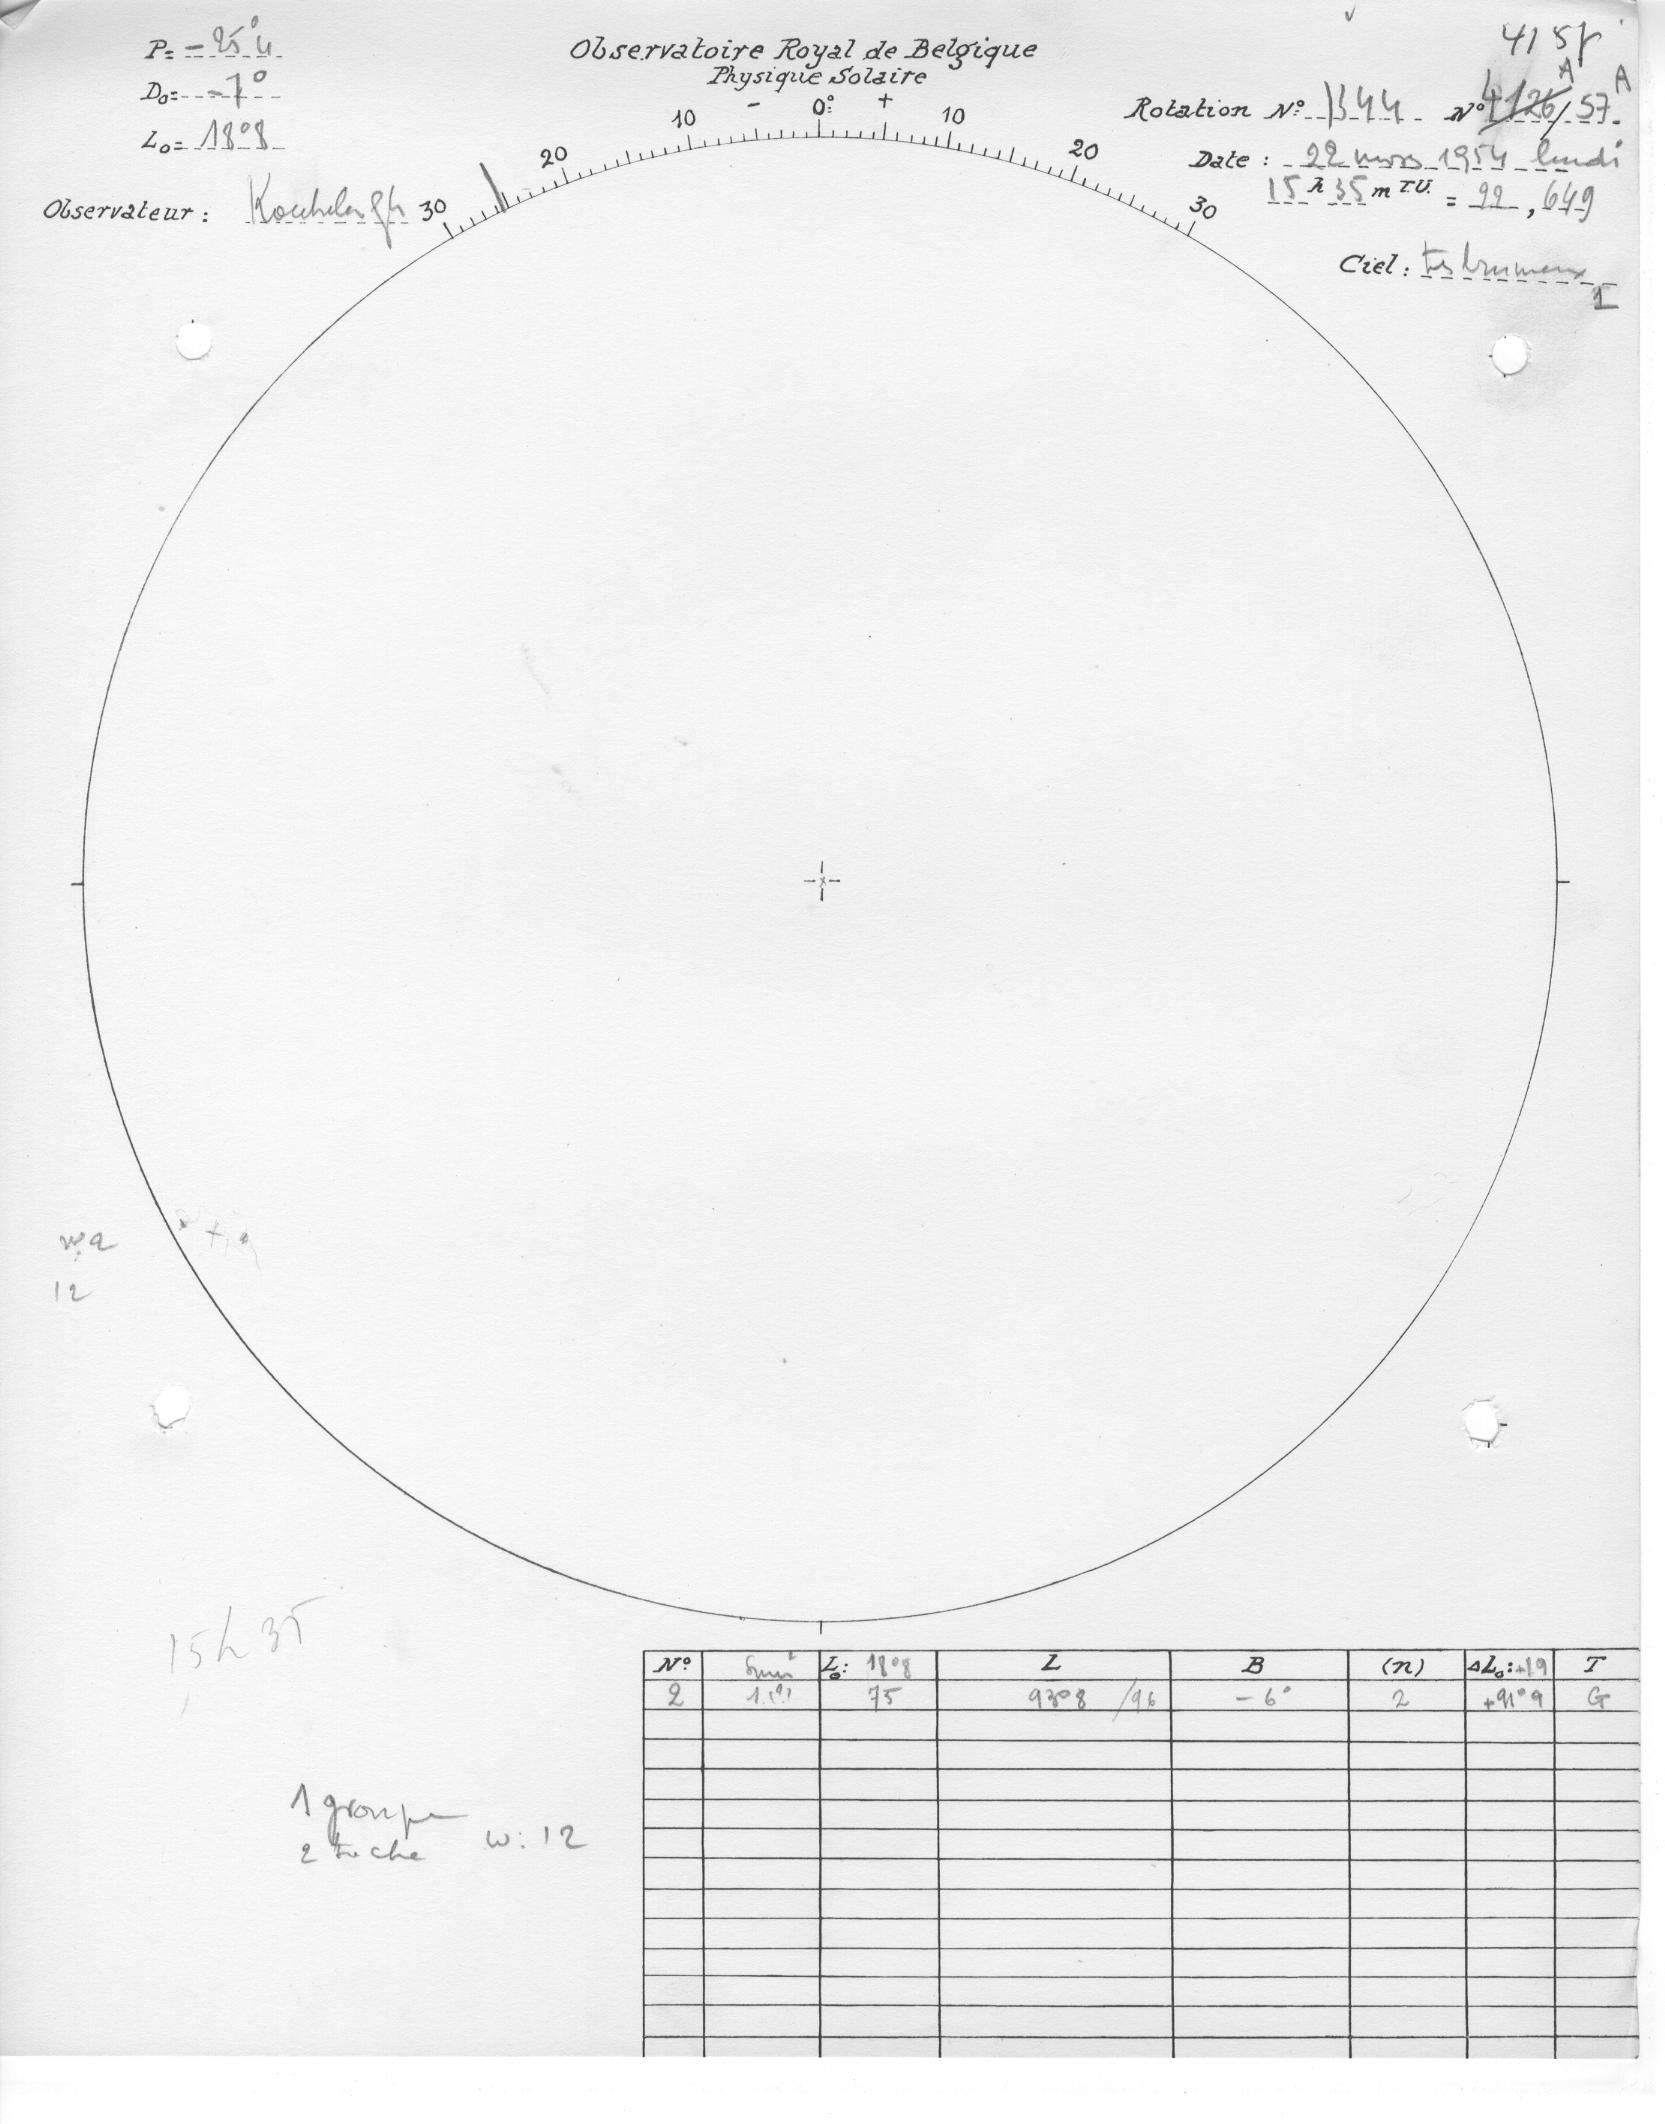 P= -25°4
D₀= -7°
L₀= 18°8
Observateur :
Observatoire Royal de Belgique
Physique Solaire
30 20 10 - 0° + 10 20 30
Rotation N° 1344 N° 4126/57 A
Date : 22 mars 1954 lundi
15 h 35 m T.U. = 22,649
Ciel : très brumeux
1
n° 2
12
15h 35
1 groupe
2 tache w: 12
N° L₀: 18°8 L B (n) ΔL₀: +19 T
2 75 93°8 /96 - 6° 2 +91°9 G